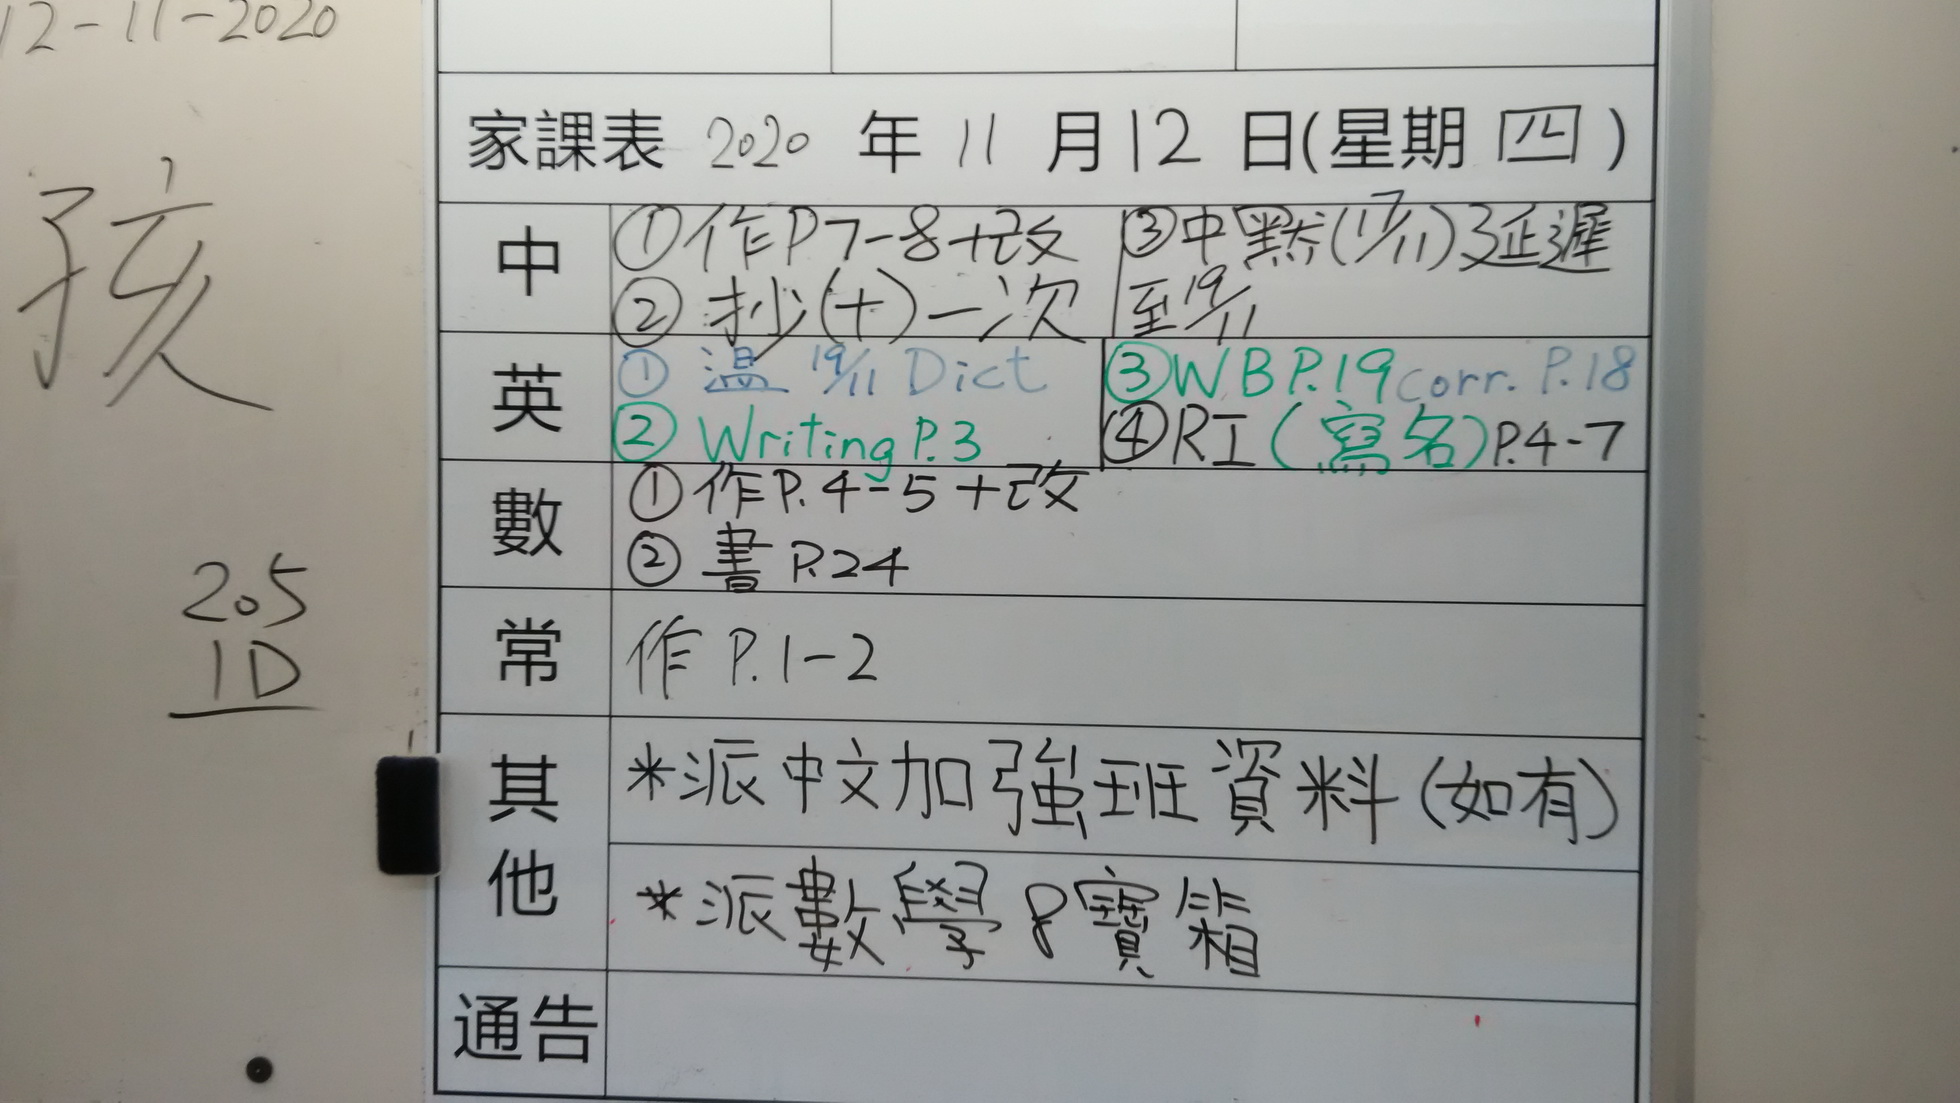 12-11-2020
孩
205
1D
家課表 2020 年 11 月 12 日(星期 四)
中
①作P7-8+改
②抄(十)一次
③中默(17/11)延遲
至19/11
英
① 温 19/11 Dict
② Writing P.3
③WB P.19 corr. P.18
④RI(寫名)P.4-7
數
①作P.4-5+改
②書 P.24
常
作 P.1-2
其他
*派中文加強班資料(如有)
*派數學8寶箱
通告